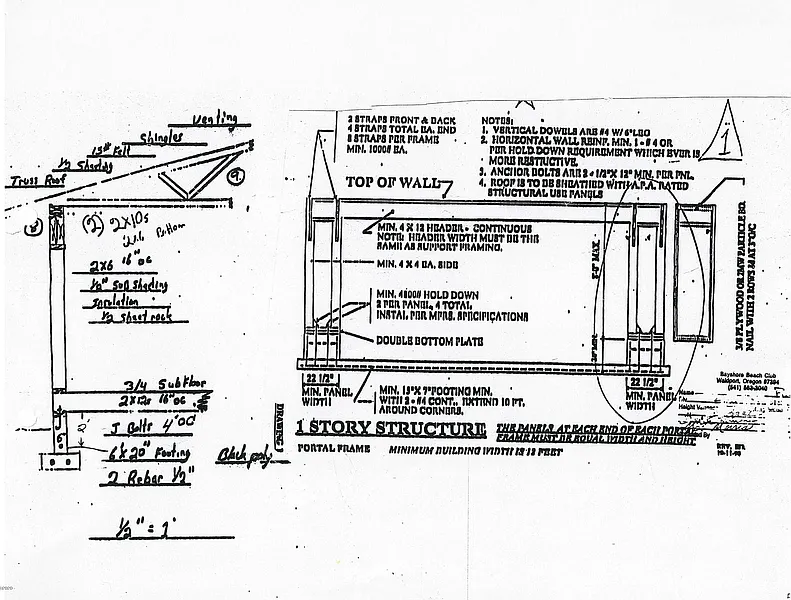 venting
Shingles
15# Felt
1/2 Shading
Truss Roof
9.
(2) 2x10s
2x6
Bottom
2x6 16" oc
1/2" Shading
Insulation
1/2 sheet rock
3/4 Subfloor
2x12s 16" oc
J Bolts 4' OC
2'
6x20" Footing
Black poly
2 Rebar 1/2"
1/2" = 1'
2 STRAPS FRONT & BACK
4 STRAPS TOTAL EA. END
8 STRAPS PER FRAME
MIN. 1000# EA.
NOTES:
1. VERTICAL DOWELS ARE #4 W/ 6" LEG
2. HORIZONTAL WALL REINF. MIN. 1 - # 4 OR
PER HOLD DOWN REQUIREMENT WHICH EVER IS
MORE RESTRICTIVE.
3. ANCHOR BOLTS ARE 2 - 1/2"X 12" MIN. PER PNL.
4. ROOF IS TO BE SHEATHED WITH A.P.A. RATED
STRUCTURAL USE PANELS
1
TOP OF WALL
MIN. 4 X 12 HEADER - CONTINUOUS
NOTE: HEADER WIDTH MUST BE THE
SAME AS SUPPORT FRAMING.
MIN. 4 X 4 EA. SIDE
MIN. HOLD DOWN
2 PER PANEL, 4 TOTAL
INSTAL PER MFRS. SPECIFICATIONS
DOUBLE BOTTOM PLATE
MAX.
3/8 PLYWOOD OR 2M-W PARTICLE BD.
NAIL WITH 2 ROWS 8d AT 3"O/C
22 1/2"
MIN. PANEL
WIDTH
MIN. 15"X 7"FOOTING MIN.
WITH 2 - #4 CONT. EXTEND 10 FT.
AROUND CORNERS.
22 1/2"
MIN. PANEL
WIDTH
Bayshore Beach Club
Waldport, Oregon 97394
(541) 563-3040
Name
Height
By
DRAWING
1 STORY STRUCTURE
THE PANELS AT EACH END OF EACH PORTAL
FRAME MUST BE EQUAL WIDTH AND HEIGHT
PORTAL FRAME
MINIMUM BUILDING WIDTH IS 12 FEET